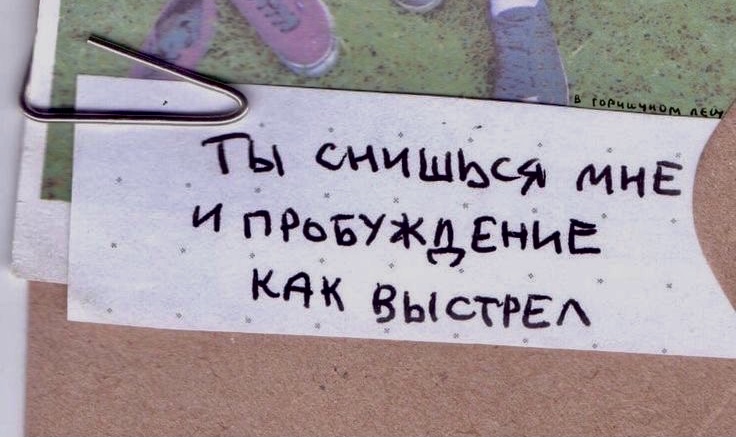 в горчичном лесу
Ты снишься мне
и пробуждение
как выстрел